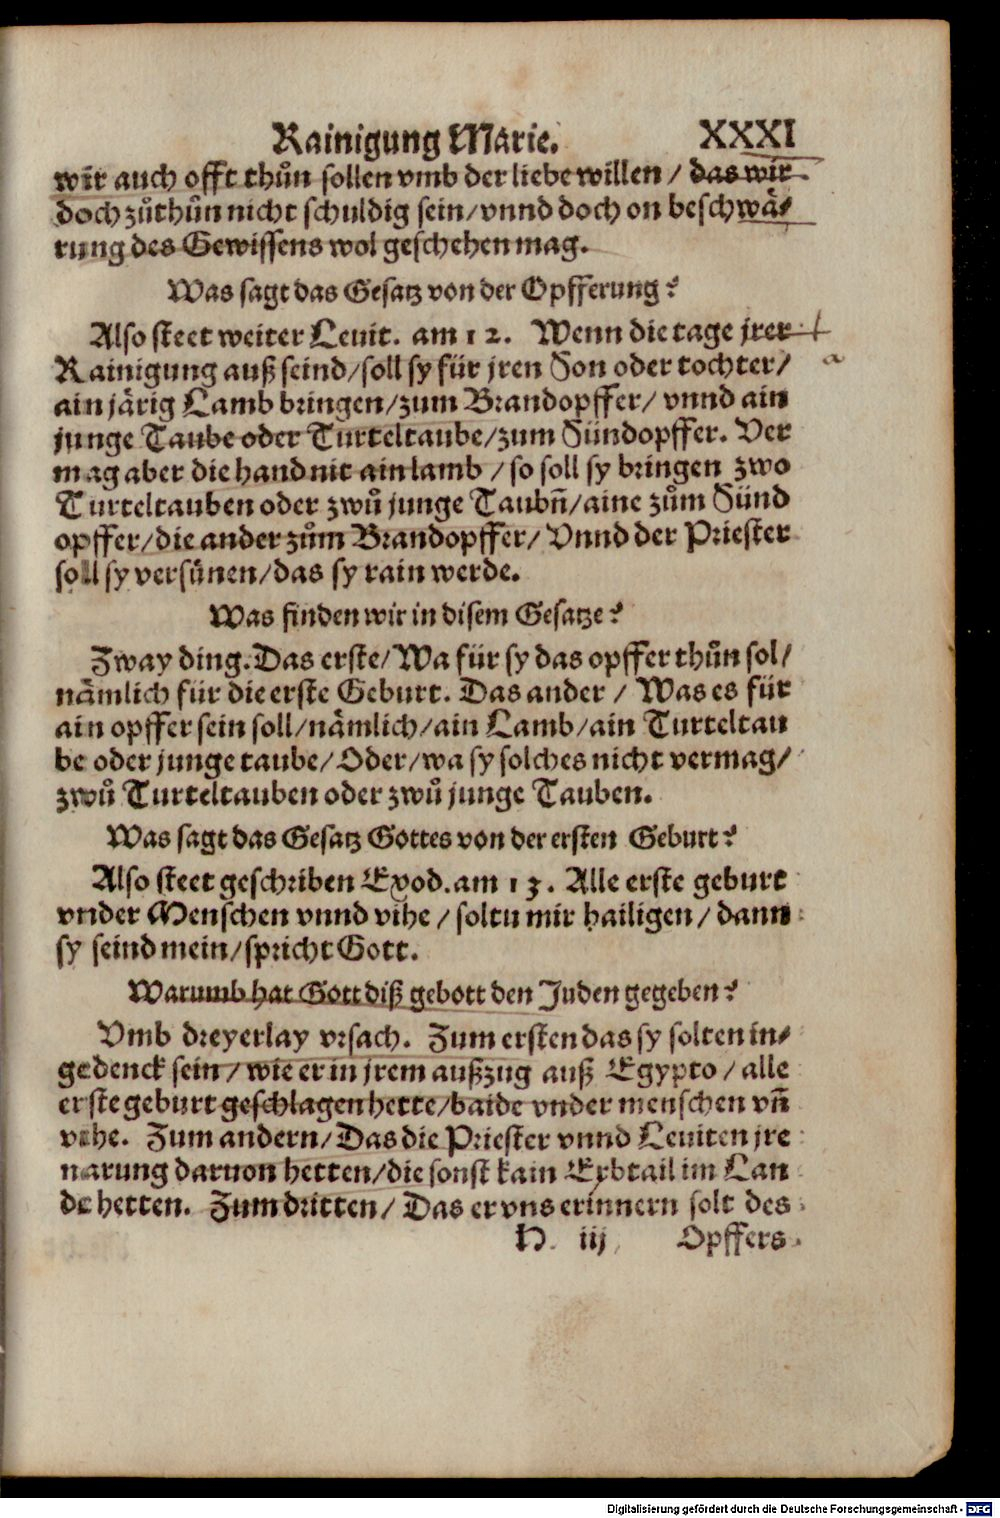 Rainigung Marie. XXXI
wir auch offt thůn sollen vmb der liebe willen / das wir
doch zůthůn nicht schuldig sein / vnnd doch on beschwä⸗
rung des Gewissens wol geschehen mag.
Was sagt das Gesatz von der Opfferung?
Also steet weiter Leuit. am 12. Wenn die tage jrer
Rainigung auß seind / soll sy für jren Son oder tochter /
ain järig Lamb bringen / zum Brandopffer / vnnd ain
junge Taube oder Turteltaube / zum Sündopffer. Ver
mag aber die hand nit ain lamb / so soll sy bringen zwo
Turteltauben oder zwů junge Taubñ / aine zům Sünd
opffer / die ander zům Brandopffer / Vnnd der Priester
soll sy versünen / das sy rain werde.
Was finden wir in disem Gesatze?
Zway ding. Das erste / Wa für sy das opffer thůn sol /
nämlich für die erste Geburt. Das ander / Was es für
ain opffer sein soll / nämlich / ain Lamb / ain Turteltau
be oder junge taube / Oder / wa sy solches nicht vermag /
zwů Turteltauben oder zwů junge Tauben.
Was sagt das Gesatz Gottes von der ersten Geburt?
Also steet geschriben Exod. am 13. Alle erste geburt
vnder Menschen vnnd vihe / soltu mir hailigen / dann
sy seind mein / spricht Gott.
Warumb hat Gott diß gebott den Juden gegeben?
Vmb dreyerlay vrsach. Zum ersten das sy solten in⸗
gedenck sein / wie er in jrem außzug auß Egypto / alle
erste geburt geschlagen hette / baide vnder menschen vñ
vihe. Zum andern / Das die Priester vnnd Leuiten jre
narung daruon hetten / die sonst kain Erbtail im Lan
de hetten. Zum dritten / Das er vns erinnern solt des
H iij Opffers
Digitalisierung gefördert durch die Deutsche Forschungsgemeinschaft - DFG